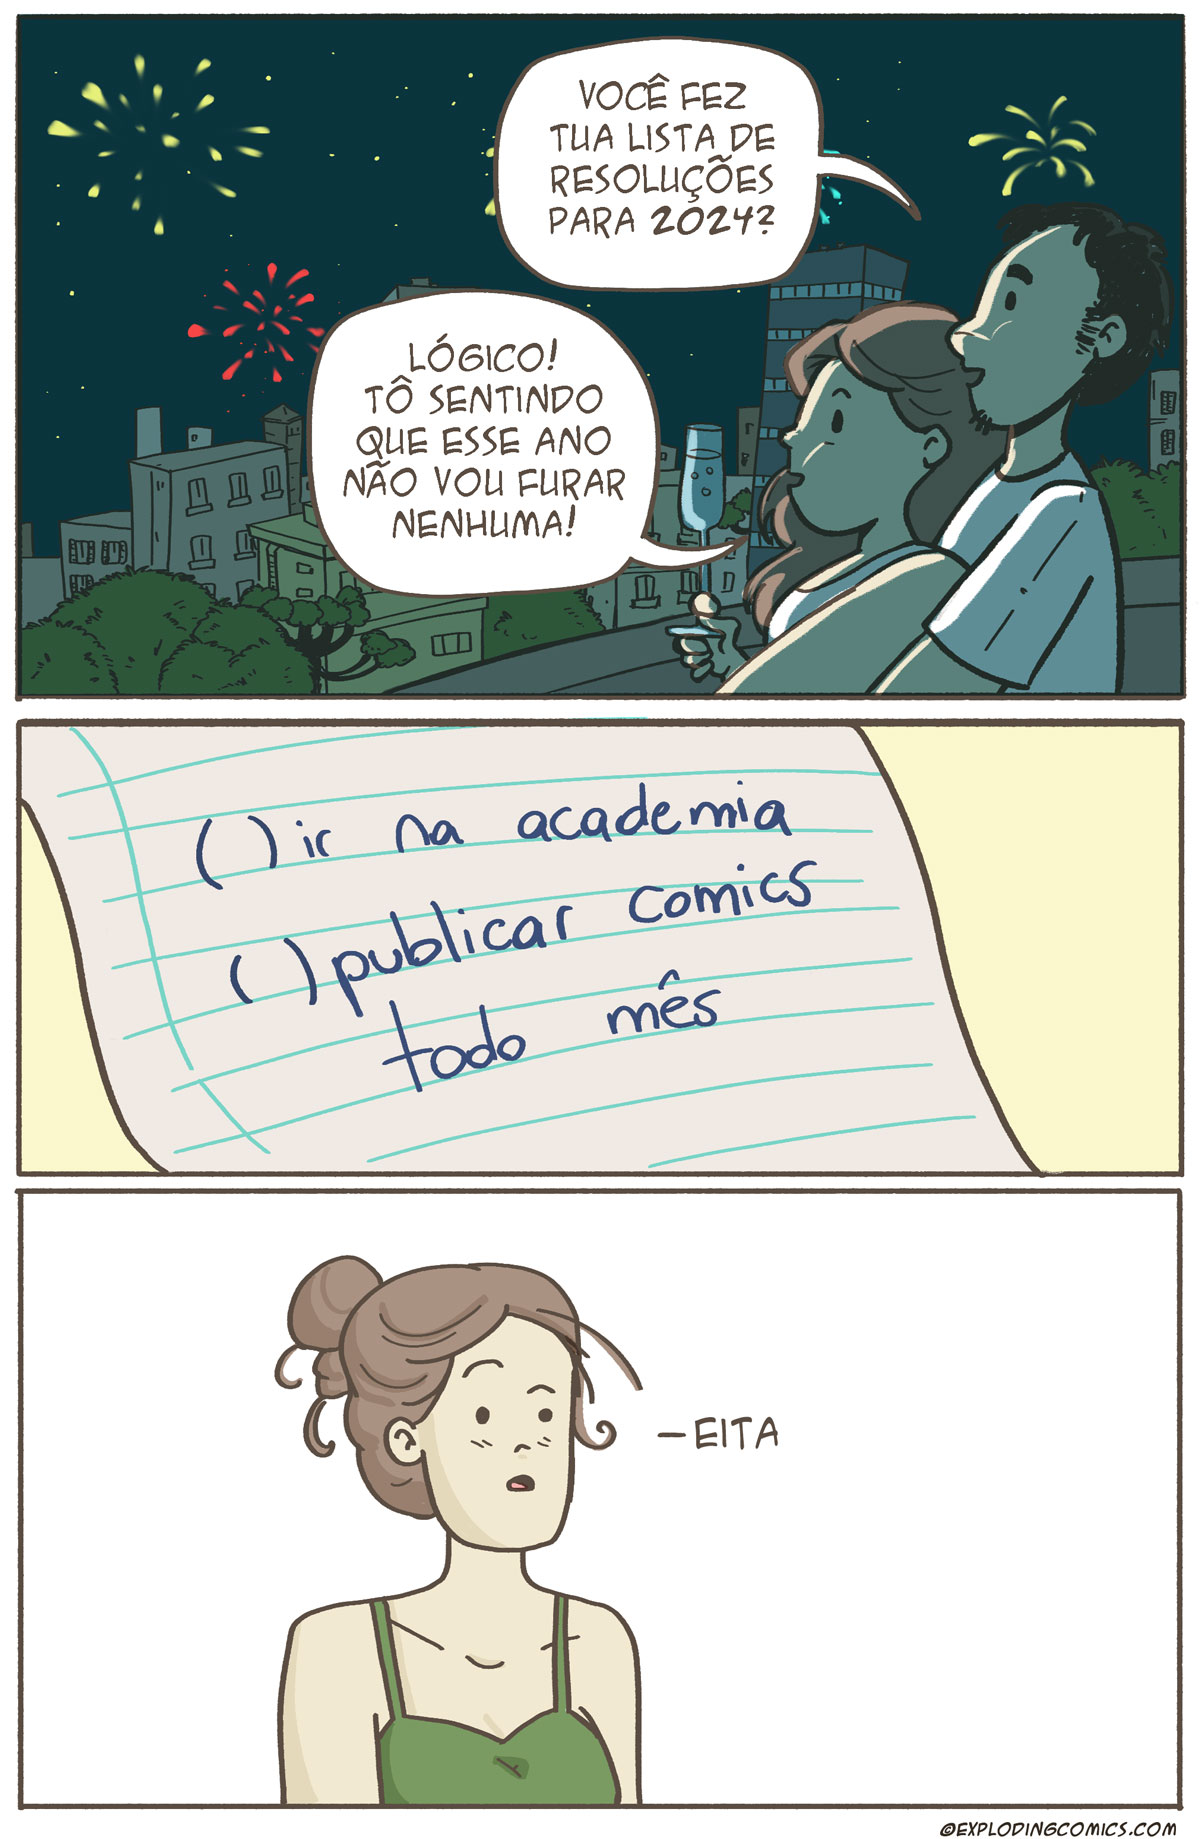 VOCÊ FEZ
TUA LISTA DE
RESOLUÇÕES
PARA 2024?
LÓGICO!
TÔ SENTINDO
QUE ESSE ANO
NÃO VOU FURAR
NENHUMA!
( ) ir na academia
( ) publicar comics
todo mês
– EITA
©EXPLODINGCOMICS.COM